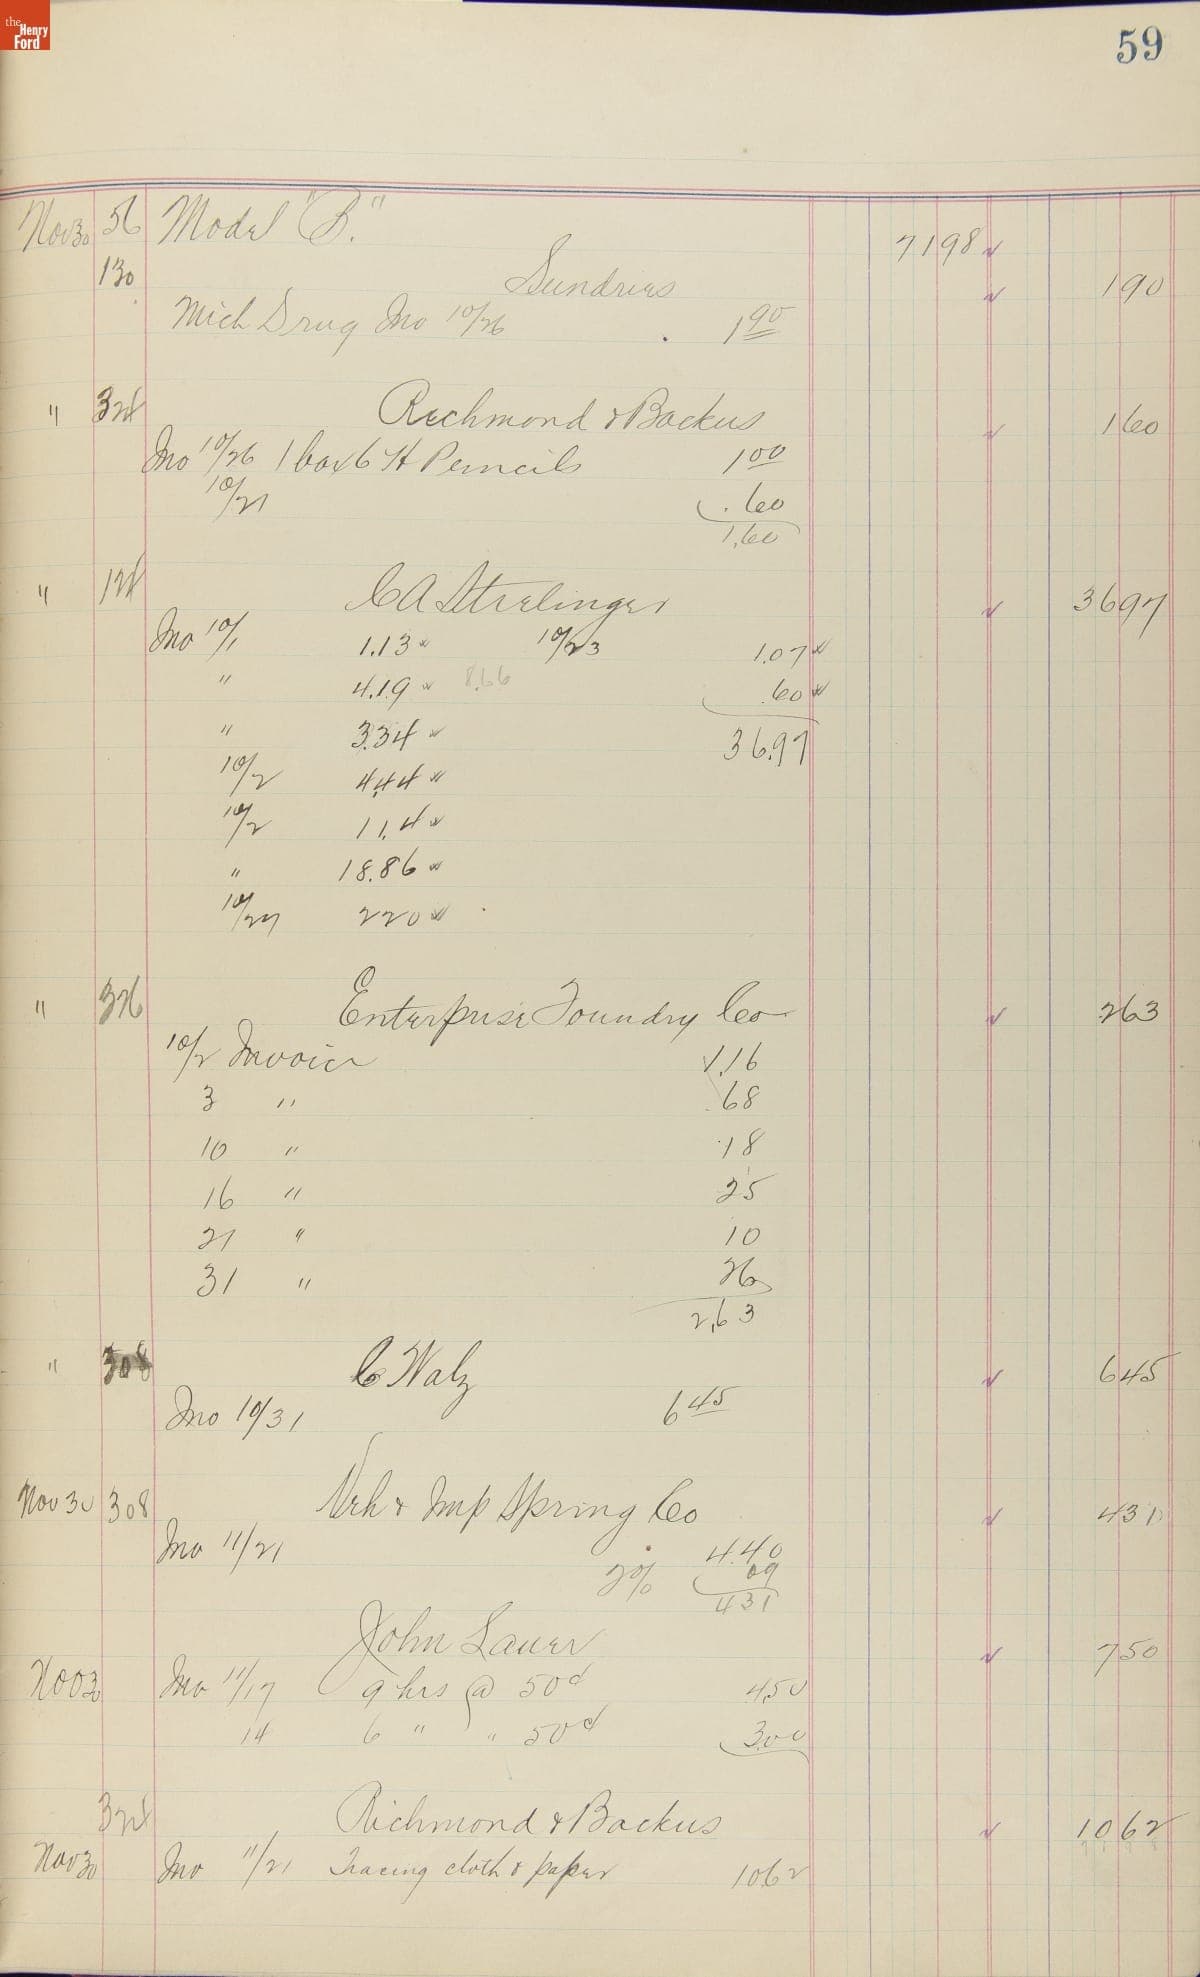 the Henry Ford
59
Nov 30 56 Model "B." 7198
130 Sundries 190
Mich Drug Inv 10/26 1 90
" 324 Richmond & Backus 160
Inv 10/26 1 box 6 H Pencils 1 00
10/21 .60
1.60
" 124 C A Strelinger 3697
Inv 10/1 1.13 10/23 1.07
" 4.19 8.66 .60
" 3.34 36.97
10/2 4.44
10/2 1 1.4
" 18.86
10/27 220
" 326 Enterprise Foundry Co 263
10/2 Invoice 1.16
3 " .68
10 " .18
16 " 25
21 " 10
31 " 26
2,63
" 308 C Walz 645
Inv 10/31 6 45
Nov 30 308 Veh & Imp Spring Co 431
Inv 11/21 4.40
2% 09
431
John Lauer 750
Nov 30 Inv 11/17 9 hrs @ 50¢ 4.50
14 6 " " 50¢ 3.00
324 Richmond & Backus 1062
Nov 30 Inv 11/21 Tracing cloth & paper 1062